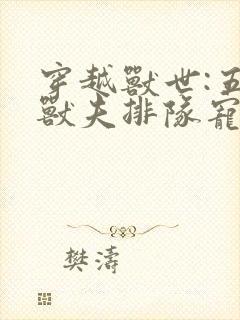 穿越獸世:五
獸夫排隊寵
樊濤